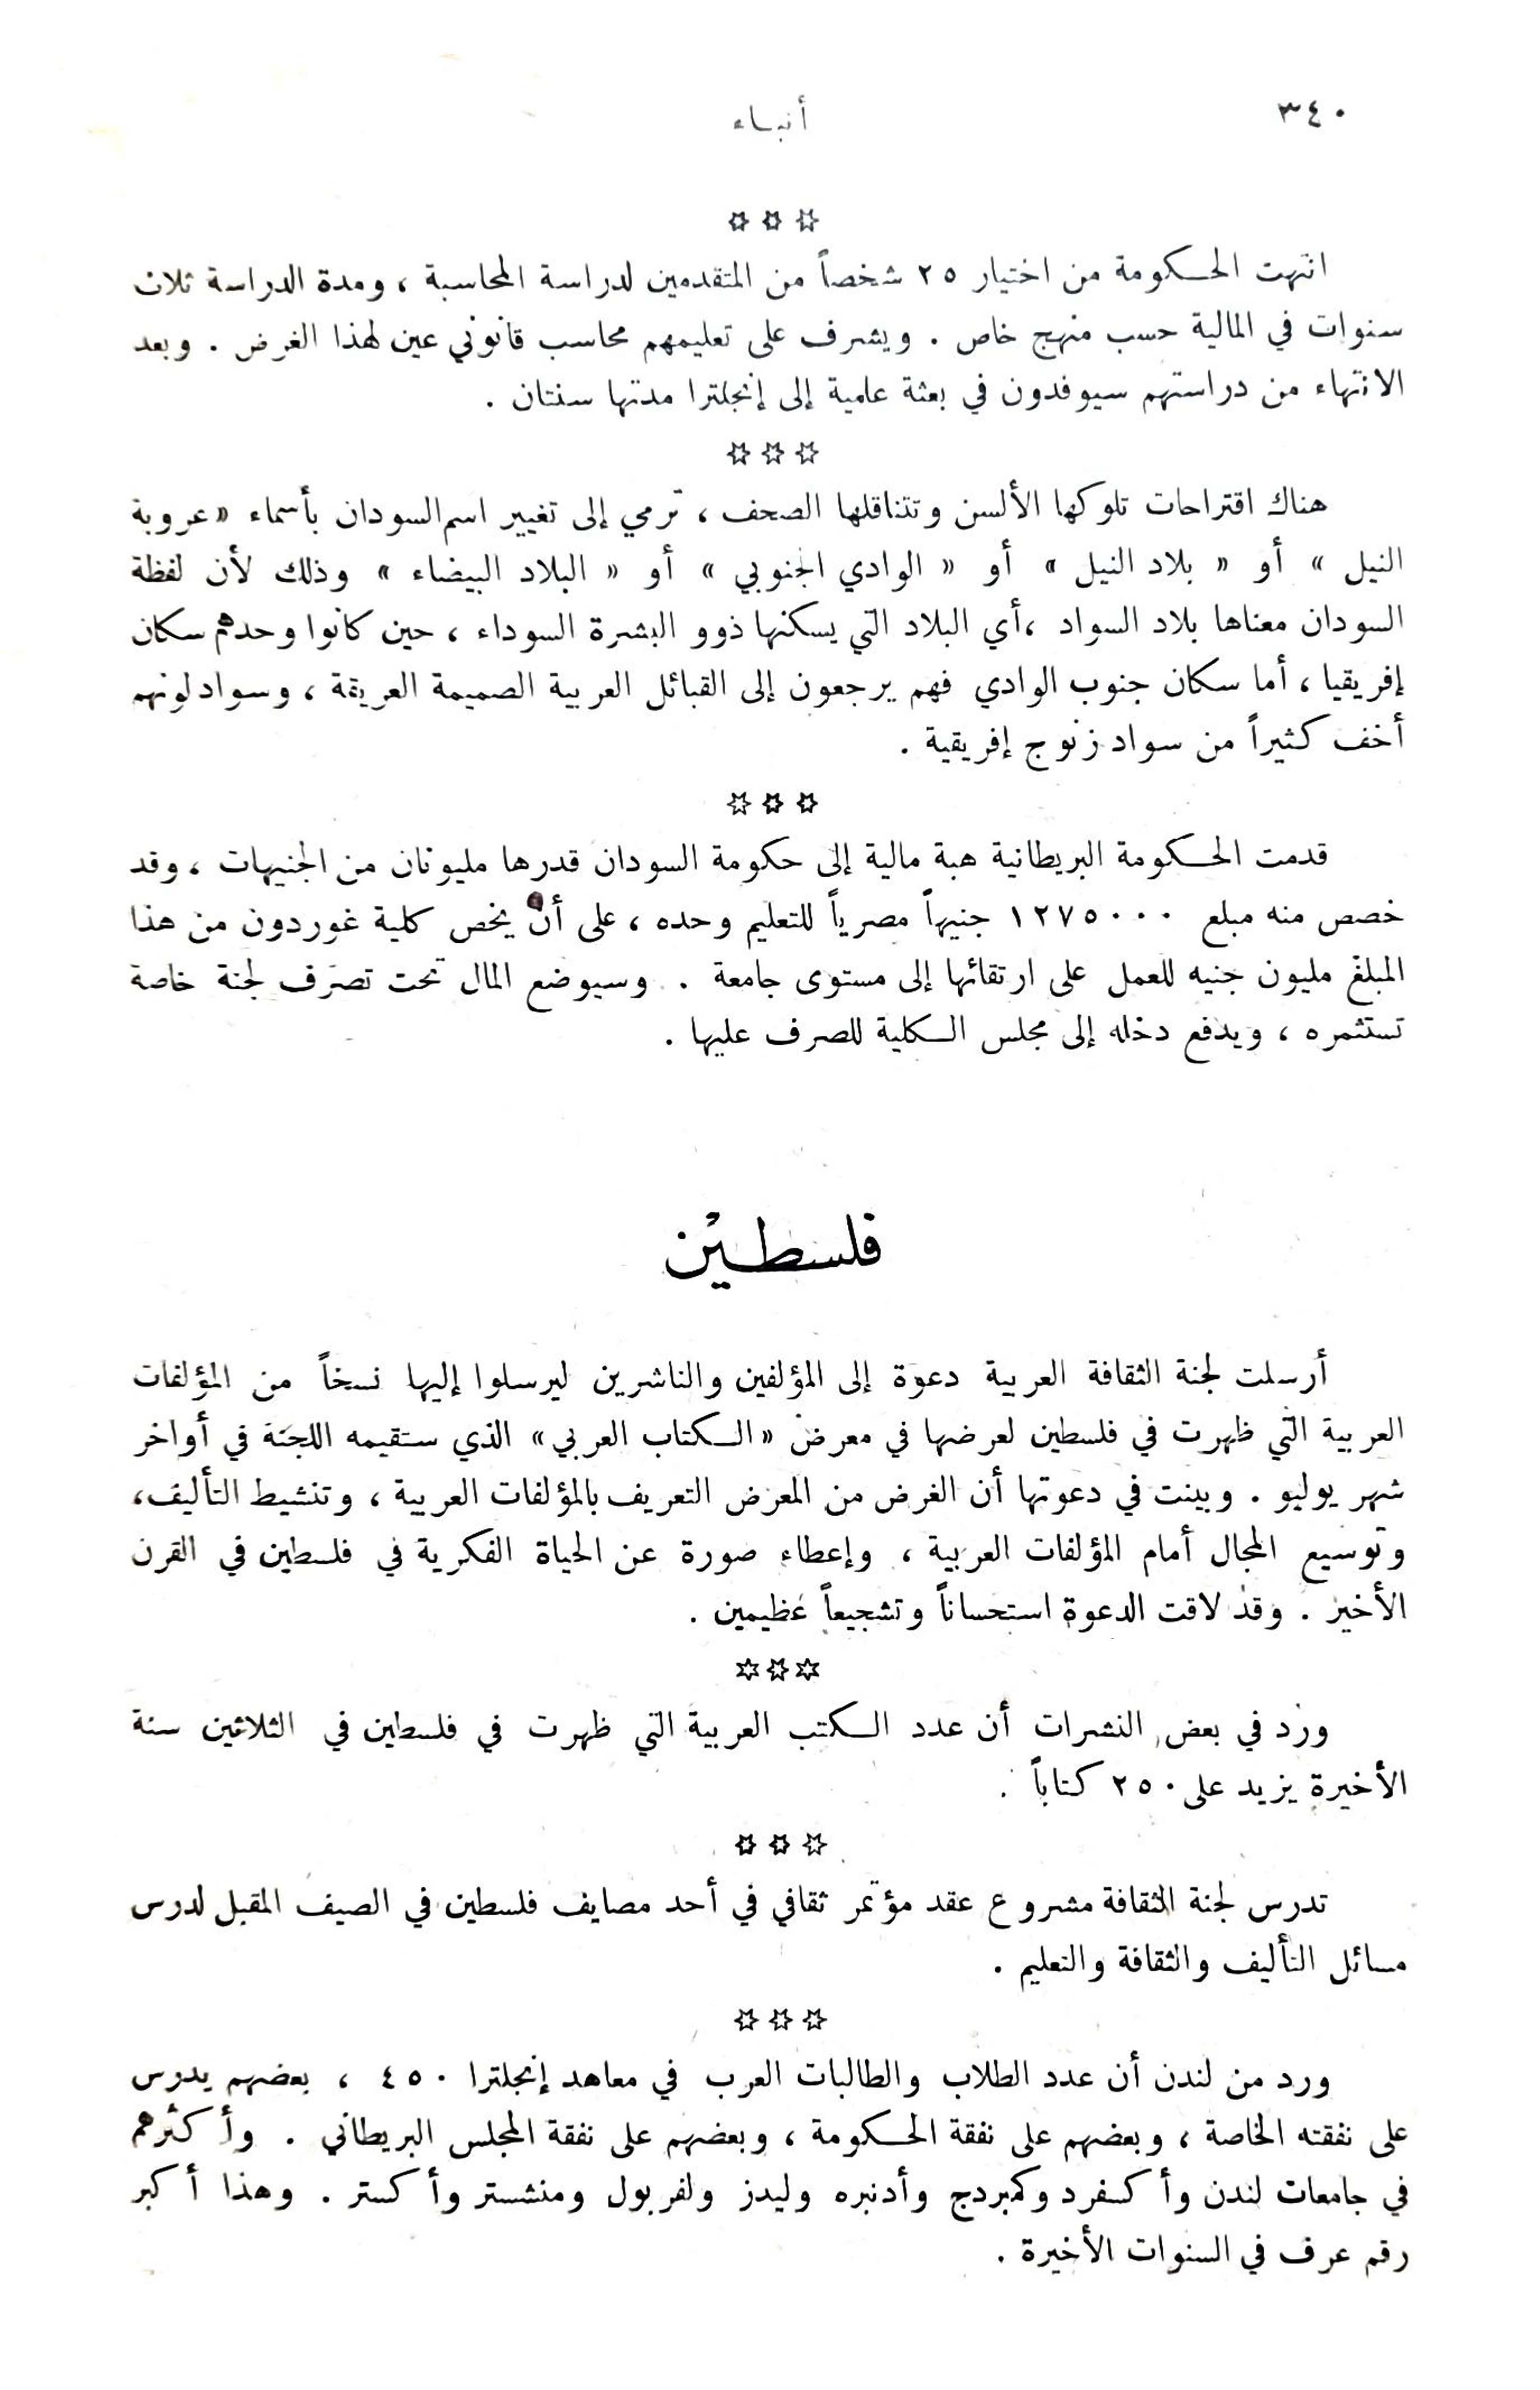 ٣٤٠
أنباء
☆ ☆ ☆
انتهت الحكومة من اختيار ٢٥ شخصاً من المتقدمين لدراسة المحاسبة ، ومدة الدراسة ثلاث
سنوات في المالية حسب منهج خاص . ويشرف على تعليمهم محاسب قانوني عين لهذا الغرض . وبعد
الانتهاء من دراستهم سيوفدون في بعثة علمية إلى إنجلترا مدتها سنتان .
☆ ☆ ☆
هناك اقتراحات تلوكها الألسن وتتناقلها الصحف ، ترمي إلى تغيير اسم السودان بأسماء « عروبة
النيل » أو « بلاد النيل » أو « الوادي الجنوبي » أو « البلاد البيضاء » وذلك لأن لفظة
السودان معناها بلاد السواد ، أي البلاد التي يسكنها ذوو البشرة السوداء ، حين كانوا وحدهم سكان
إفريقيا ، أما سكان جنوب الوادي فهم يرجعون إلى القبائل العربية الصميمة العريقة ، وسواد لونهم
أخف كثيراً من سواد زنوج إفريقية .
☆ ☆ ☆
قدمت الحكومة البريطانية هبة مالية إلى حكومة السودان قدرها مليونان من الجنيهات ، وقد
خصص منه مبلغ ١٢٧٥٠٠٠ جنيهاً مصرياً للتعليم وحده ، على أن يخص كلية غوردون من هذا
المبلغ مليون جنيه للعمل على ارتقائها إلى مستوى جامعة . وسيوضع المال تحت تصرف لجنة خاصة
تستثمره ، ويدفع دخله إلى مجلس الكلية للصرف عليها .
فلسطين
أرسلت لجنة الثقافة العربية دعوة إلى المؤلفين والناشرين ليرسلوا إليها نسخاً من المؤلفات
العربية التي ظهرت في فلسطين لعرضها في معرض « الكتاب العربي » الذي ستقيمه اللجنة في أواخر
شهر يوليو . وبينت في دعوتها أن الغرض من المعرض التعريف بالمؤلفات العربية ، وتنشيط التأليف ،
وتوسيع المجال أمام المؤلفات العربية ، وإعطاء صورة عن الحياة الفكرية في فلسطين في القرن
الأخير . وقد لاقت الدعوة استحساناً وتشجيعاً عظيمين .
☆ ☆ ☆
ورد في بعض النشرات أن عدد الكتب العربية التي ظهرت في فلسطين في الثلاثين سنة
الأخيرة يزيد على ٢٥٠ كتاباً .
☆ ☆ ☆
تدرس لجنة الثقافة مشروع عقد مؤتمر ثقافي في أحد مصايف فلسطين في الصيف المقبل لدرس
مسائل التأليف والثقافة والتعليم .
☆ ☆ ☆
ورد من لندن أن عدد الطلاب والطالبات العرب في معاهد إنجلترا ٤٥٠ ، بعضهم يدرس
على نفقته الخاصة ، وبعضهم على نفقة الحكومة ، وبعضهم على نفقة المجلس البريطاني . وأكثرهم
في جامعات لندن وأكسفرد وكمبردج وأدنبره وليدز ولفربول ومنشستر وأكستر . وهذا أكبر
رقم عرف في السنوات الأخيرة .